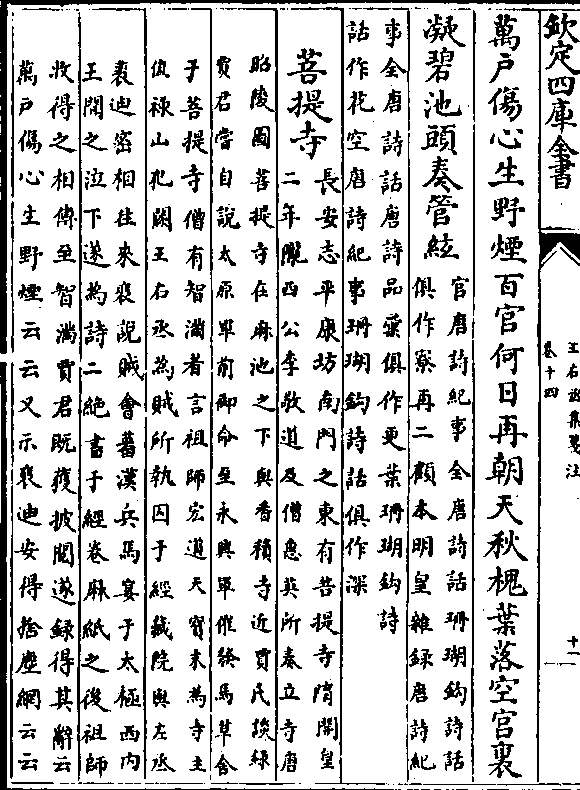 欽定四庫全書
王右丞集箋注
卷十四
十一
萬戶傷心生野煙百官何日再朝天秋槐葉落空宮裏
凝碧池頭奏管絃
官唐詩紀事全唐詩話珊瑚鈎詩話
俱作寮再二顧本明皇雜録唐詩紀
事全唐詩話唐詩品彙俱作更葉珊瑚鈎詩
話作花空唐詩紀事珊瑚鈎詩話俱作深
菩提寺
長安志平康坊南門之東有菩提寺隋開皇
二年隴西公李敬道及僧惠英所奏立寺唐
昭陵圖菩提寺在麻池之下與香積寺近賈氏談録
賈君嘗自說太原畢前卿命至永興軍催發馬草舍
于菩提寺僧有智滿者言祖師宏道天寳末為寺主
值祿山犯闕王右丞為賊所執囚于經藏院與左丞
裴迪密相往來裴說賊會蕃漢兵馬宴于太極西内
王聞之泣下遂為詩二絶書于經卷麻紙之後祖師
收得之相傳至智滿賈君既獲披閲遂録得其辭云
萬戶傷心生野煙云云又示裴迪安得捨塵網云云